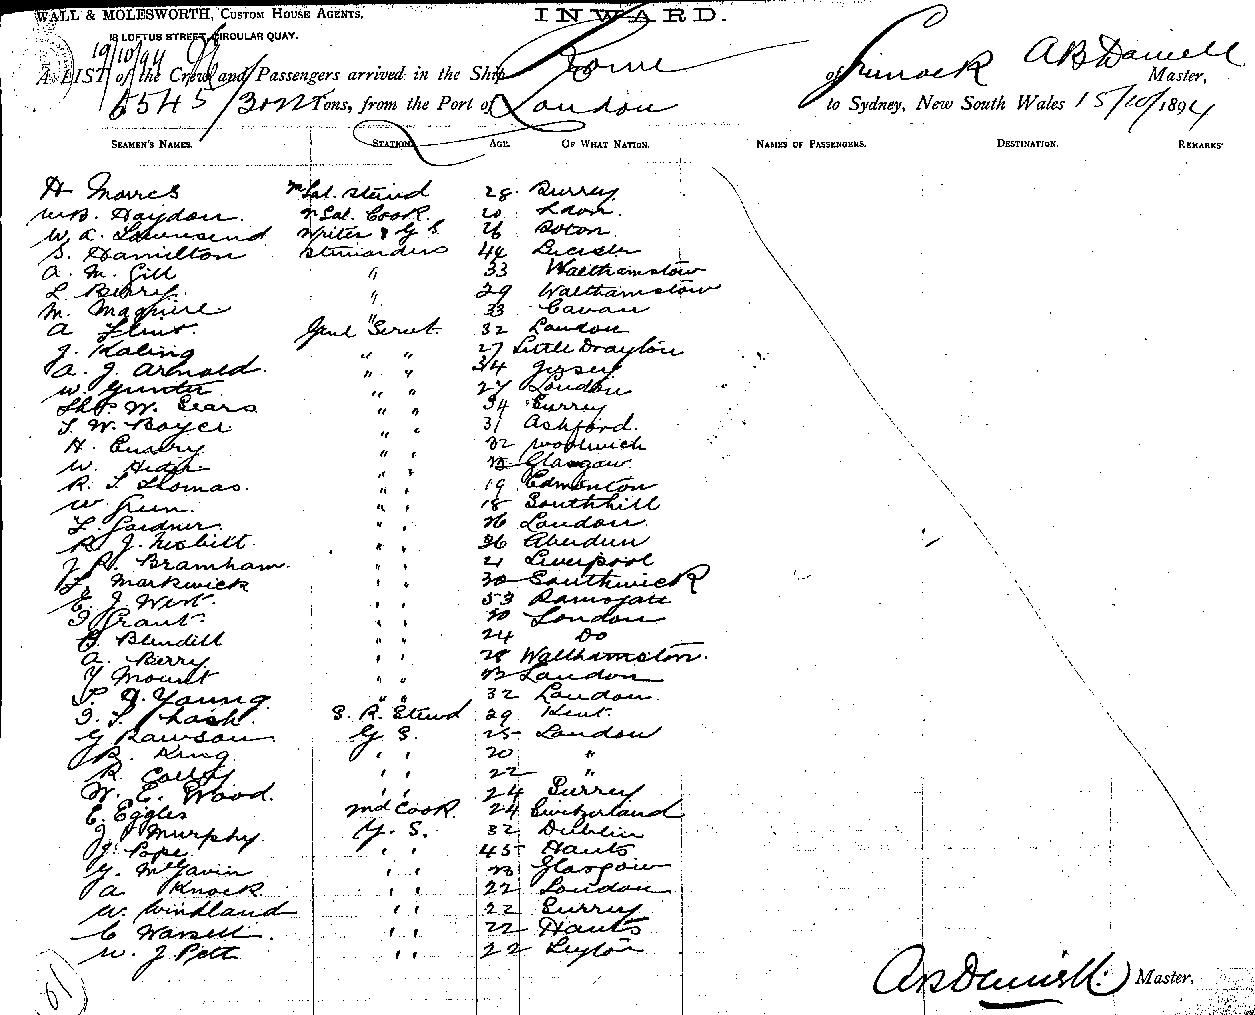 WALL & MOLESWORTH, CUSTOM HOUSE AGENTS.
INWARD.
18 LOFTUS STREET, CIRCULAR QUAY.
19/10/94
A LIST of the Crew and Passengers arrived in the Ship Rome of Greenock A B Daniell Master,
6545/3012 Tons, from the Port of London to Sydney, New South Wales 15/10/1894
SEAMEN'S NAMES. STATION. AGE. OF WHAT NATION. NAMES OF PASSENGERS. DESTINATION. REMARKS
H 28 Surrey
W. B. Haydon. Sal. Cook. 20
W. A. Townsend Writer & G S 26
S. Hamilton 44 Leicester
A. M. Gill " 33 Walthamstow
L Berry. " 29 Walthamstow
M. Maguire " 33 Cavan
A Genl Servt. 32 London
J. Kaling " " 27 Little Drayton
A. J. Arnold. " " 34 Jersey
W. Gunter " " 27 London
W. Sears " " 34 Surrey
T. W. Boyer " " 31 Ashford.
H. " " 22 Woolwich
W. " " Glasgow
R. T. Thomas. " " 19 Edmonton
W Green. " " 18 Southhill
L. Gardner. " " 26 London.
R J. Nesbitt. " " 36 Aberdeen
J R. Bramham. " " 21 Liverpool
Markwick " " 30 Southwick
E. J West. " " 53 Ramsgate
Grant. " " 30 London
Blundell " " 24 Do
A. Berry " " 28 Walthamston.
Y Mount " " London
P. D. Young. " " 32 London.
S. R. Stewd 29 Kent.
G Rawson G S. 25 London
R. King " " 20 "
R. " " 22 "
W. E. Wood. " " 24 Surrey
E. Eggles Cook. 24 Switzerland
J Murphy G. S. 32 Dublin
J. Pope " " 45 Hants
G. McGavin " " 23 Glasgow
A Knock " " 22 London
W. Windland " " 22 Surrey
C Warsell. " " 22 Hants
W. J Pett " " 22 Leyton
A B Daniell. Master.
(61)